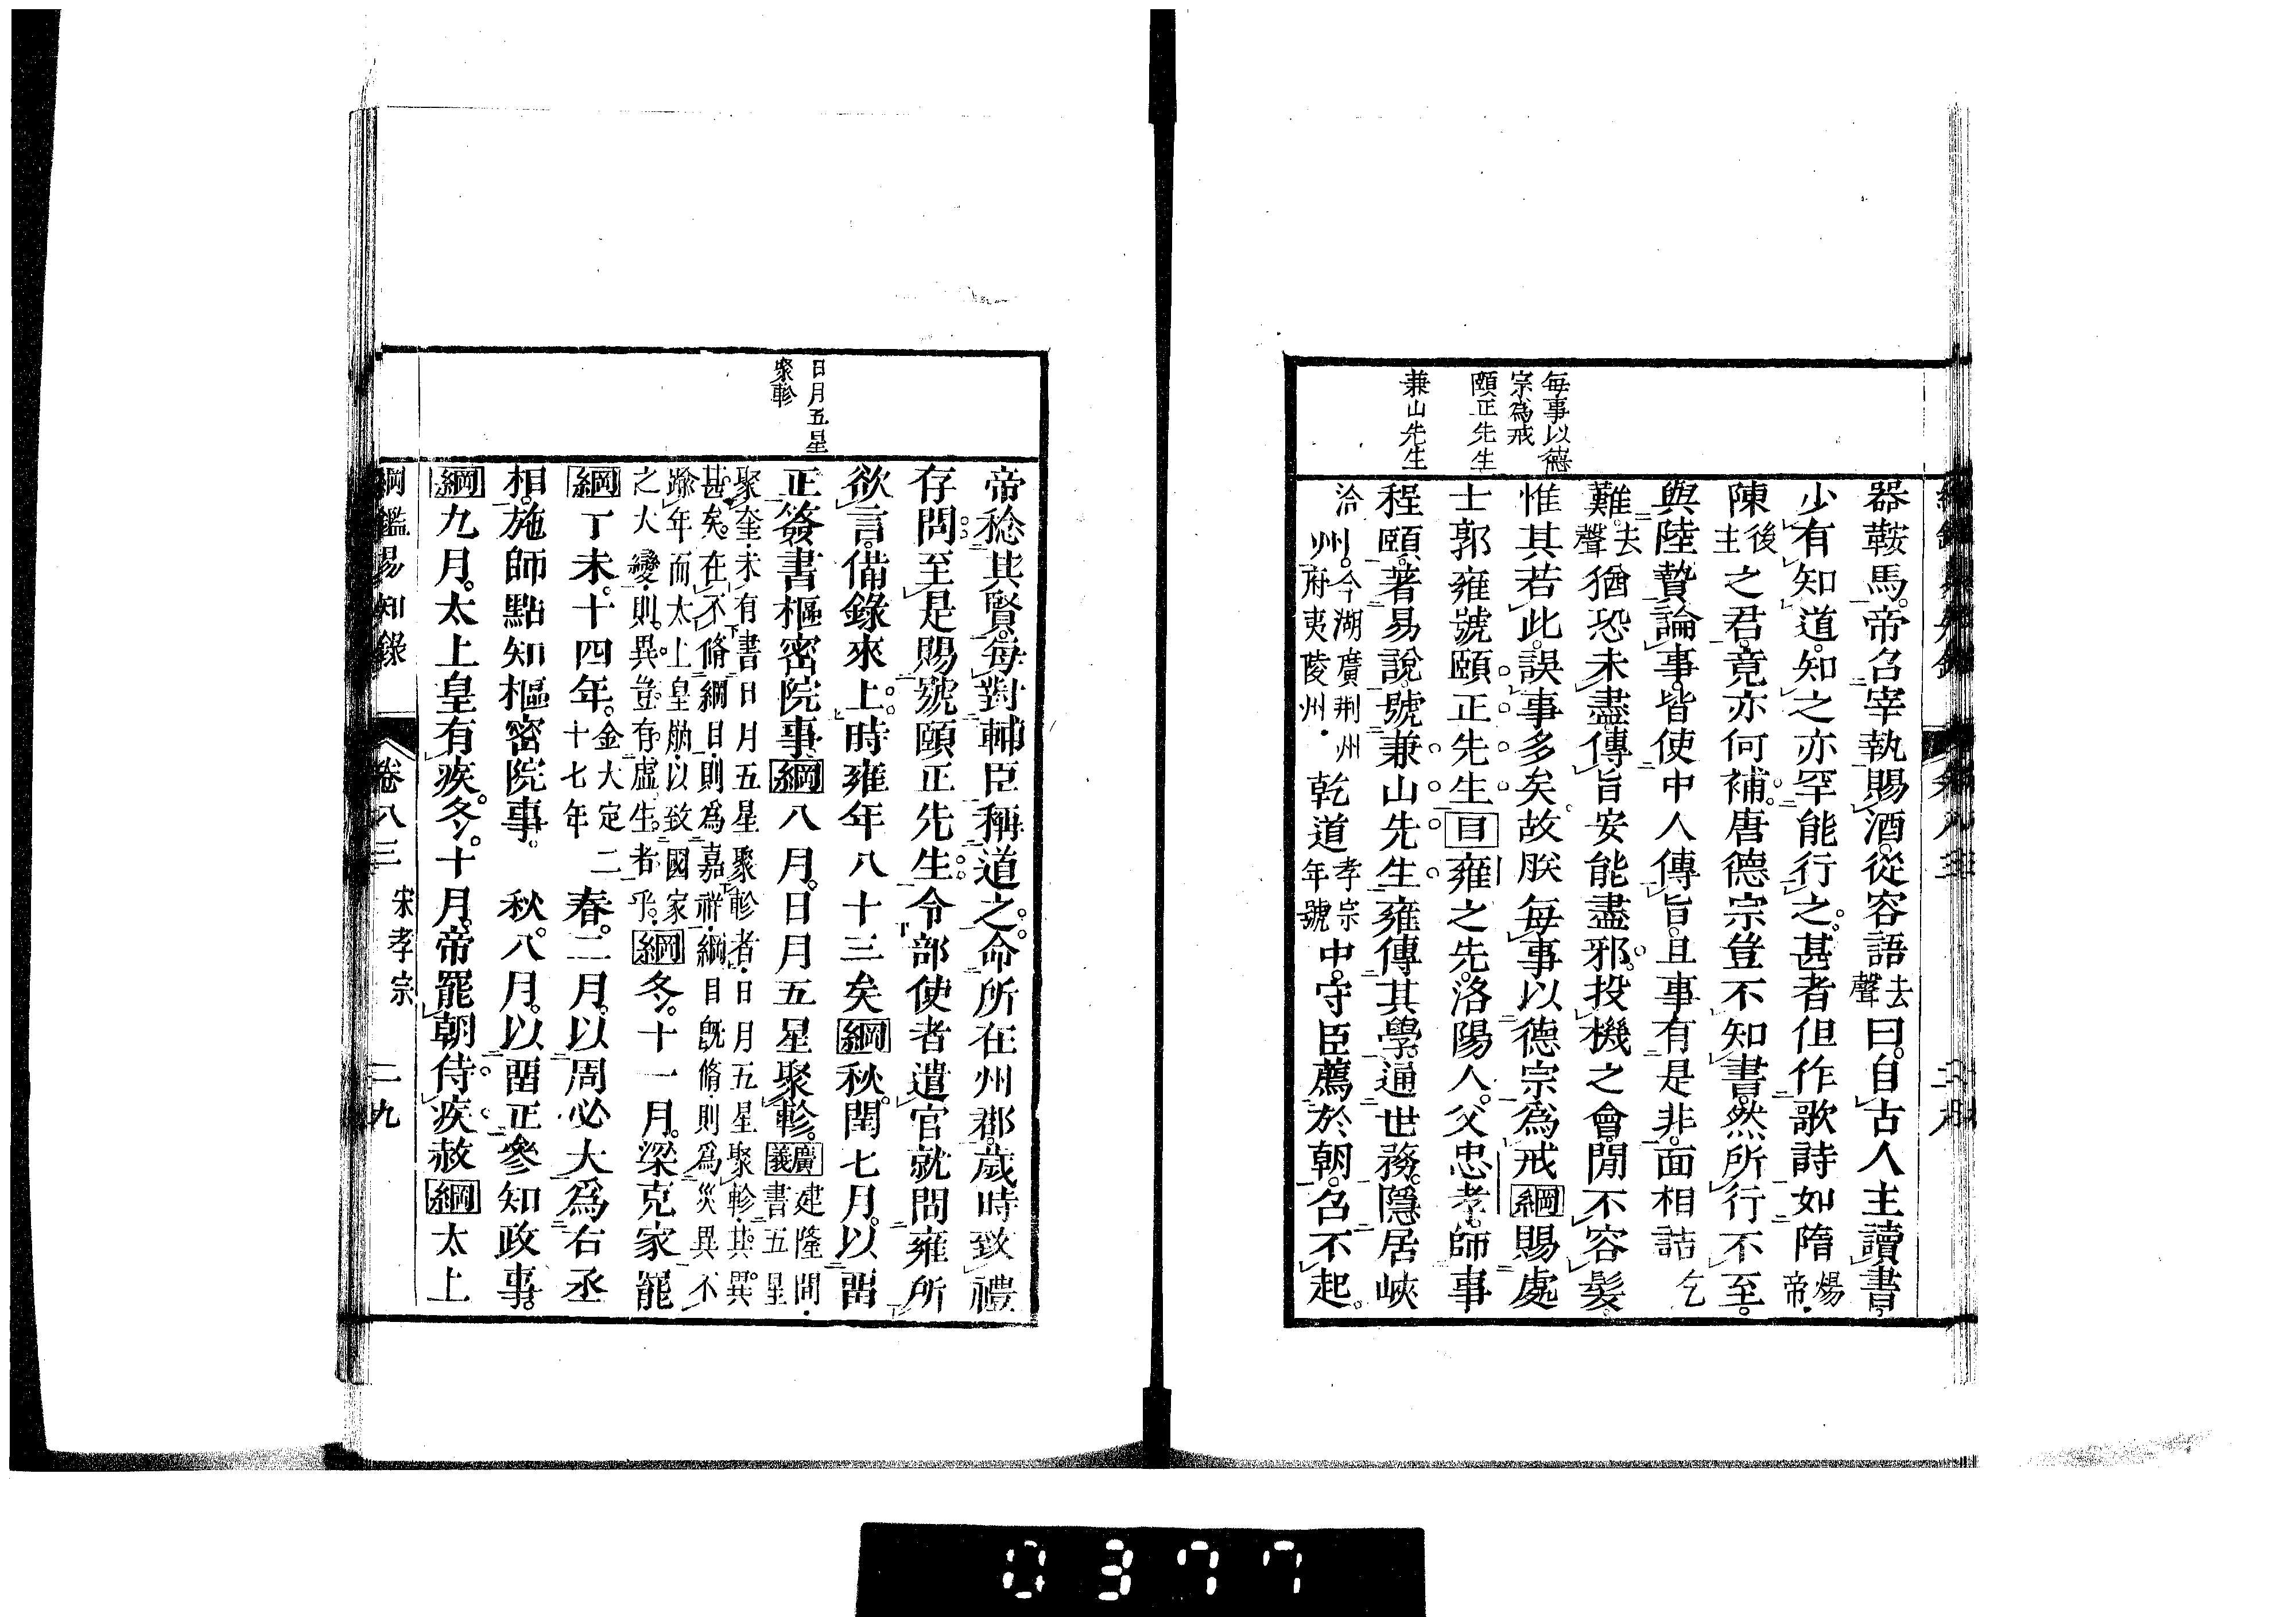 每事以德
宗為戒
頤正先生
兼山先生
器鞍馬帝召宰執賜酒從容語去聲曰自古人主讀書
少有知道知之亦罕能行之甚者但作歌詩如隋煬帝
陳後主之君竟亦何補唐德宗豈不知書然所行不至
與陸贄論事皆使中人傳旨且事有是非面相詰乞
難去聲猶恐未盡傳旨安能盡邪投機之會間不容髮
惟其若此誤事多矣故朕每事以德宗為戒綱賜處
士郭雍號頤正先生目雍之先洛陽人父忠孝師事
程頤著易說號兼山先生雍傳其學通世務隱居峽
州今湖廣荆州府夷陵州乾道孝宗年號中守臣薦於朝召不起
洽
日月五星
聚軫
帝稔其賢每對輔臣稱道之命所在州郡歲時致禮
存問至是賜號頤正先生令部使者遣官就問雍所
欲言備錄來上時雍年八十三矣綱秋閏七月以留
正簽書樞密院事綱八月日月五星聚軫廣義建隆間書五星
聚奎未有書日月五星聚軫者日月五星聚軫其異
甚矣在不脩綱目則爲嘉祥綱目既脩則爲災異不
踰年而太上皇崩以致國家
之大變則異豈有虛生者乎綱冬十一月梁克家罷
綱丁未十四年金大定二十七年春二月以周必大爲右丞
相施師點知樞密院事 秋八月以留正參知政事
綱九月太上皇有疾冬十月帝罷朝侍疾赦綱太上
綱鑑易知錄 卷八三 宋孝宗 二九
0377